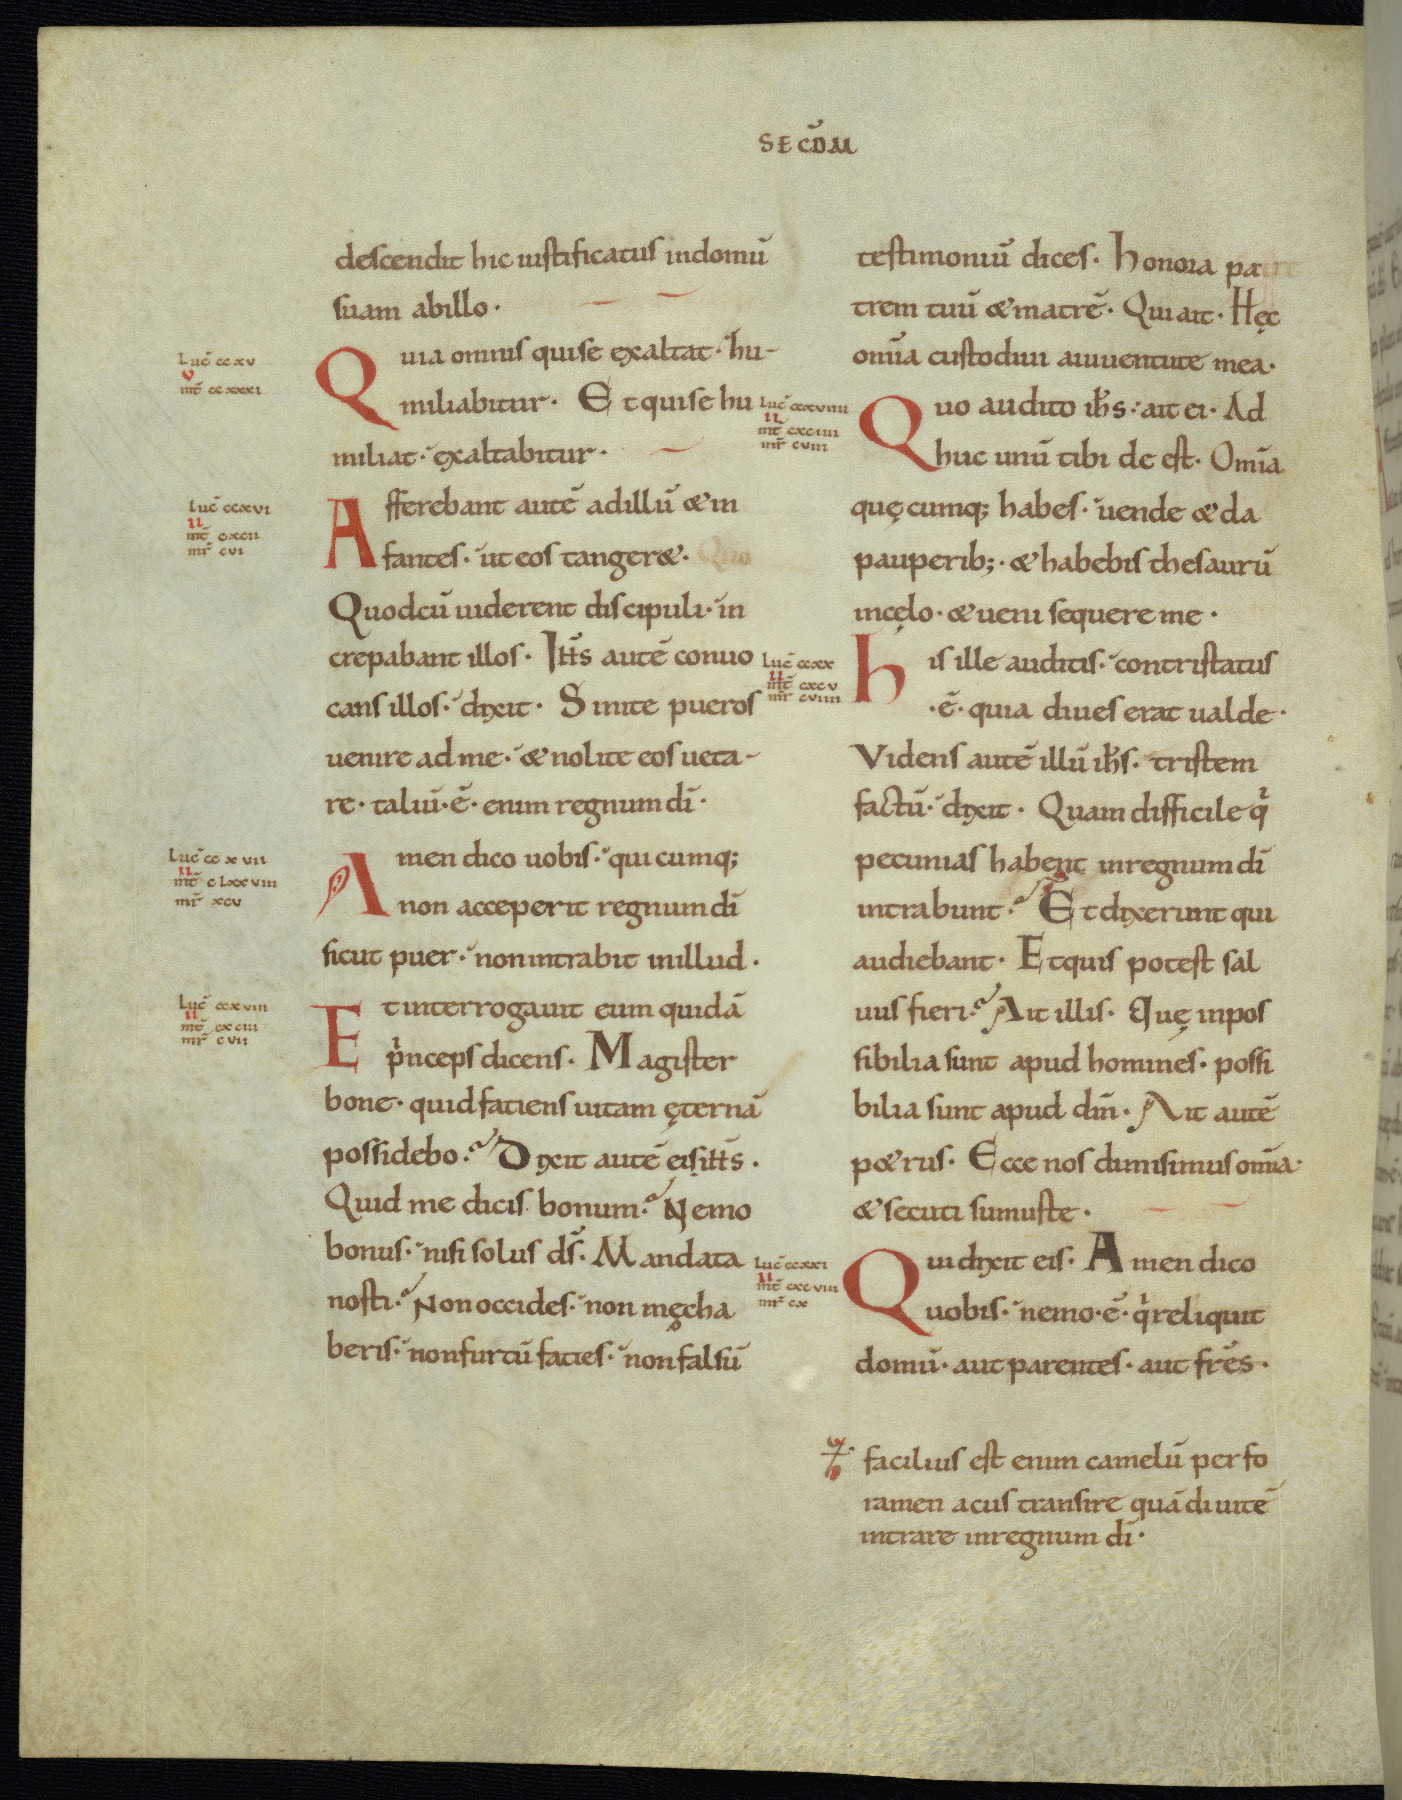 SECD̄M
descendit hic iustificatus indomū
suam abillo·
Lūc ccxv
v
mt̄ ccxxxi
Quia omnis quise exaltat· hu-
miliabitur· Et quise hu
miliat· exaltabitur·
Lūc ccxvi
ii
mt̄ cxcii
mr̄ cvi
Afferebant autē adillū & in
fantes· ut eos tanger&·
Quodcū uiderent discipuli· in
crepabant illos· Ih̄s autē conuo
cans illos· dixit· Sinite pueros
uenire ad me· & nolite eos ueta-
re· taliū·ē· enim regnum dī·
Lūc ccxvii
ii
mt̄ clxxviii
mr̄ xcv
Amen dico uobis· quicumq;
non acceperit regnum dī
sicut puer· nonintrabit inillud·
Lūc ccxviii
ii
mt̄ cxciii
mr̄ cvii
Et interrogauit eum quidā
p̄nceps dicens· Magister
bone· quid faciens uitam ęternā
possidebo· Dixit autē ei ih̄s·
Quid me dicis bonum· Nemo
bonus· nisi solus d̄s· Mandata
nosti· Non occides· non męcha
beris· nonfurtū facies· non falsū
testimoniū dices· Honora pa
trem tuū & matrē· Qui ait· Hęc
om̄ia custodiui aiuuentute mea·
Lūc ccxviiii
ii
mt̄ cxciiii
mr̄ cviii
Quo audito ih̄s· ait ei· Ad
huc unū tibi de est· Om̄ia
quęcumq; habes· uende & da
pauperib;· & habebis thesaurū
incęlo· & ueni sequere me·
Lūc ccxx
ii
mt̄ cxcv
mr̄ cviiii
His ille auditis· contristatus
·ē· quia diues erat ualde·
Videns autē illū ih̄s· tristem
factū· dixit· Quam difficile q̄
pecunias habent inregnum dī
intrabunt· Et dixerunt qui
audiebant· Et quis potest sal
uus fieri· Ait illis· Quę inpos
sibilia sunt apud homines· possi
bilia sunt apud dm̄· Ait autē
p&rus· Ecce nos dimisimus om̄ia·
& secuti sumus te·
Lūc ccxxi
ii
mt̄ cxcviii
mr̄ cx
Qui dixit eis· Amen dico
uobis· nemo·ē· q̄ reliquit
domū· aut parentes· aut fr̄es·
facilius est enim camelū per fo
ramen acus transire quā diuitē
intrare inregnum dī·